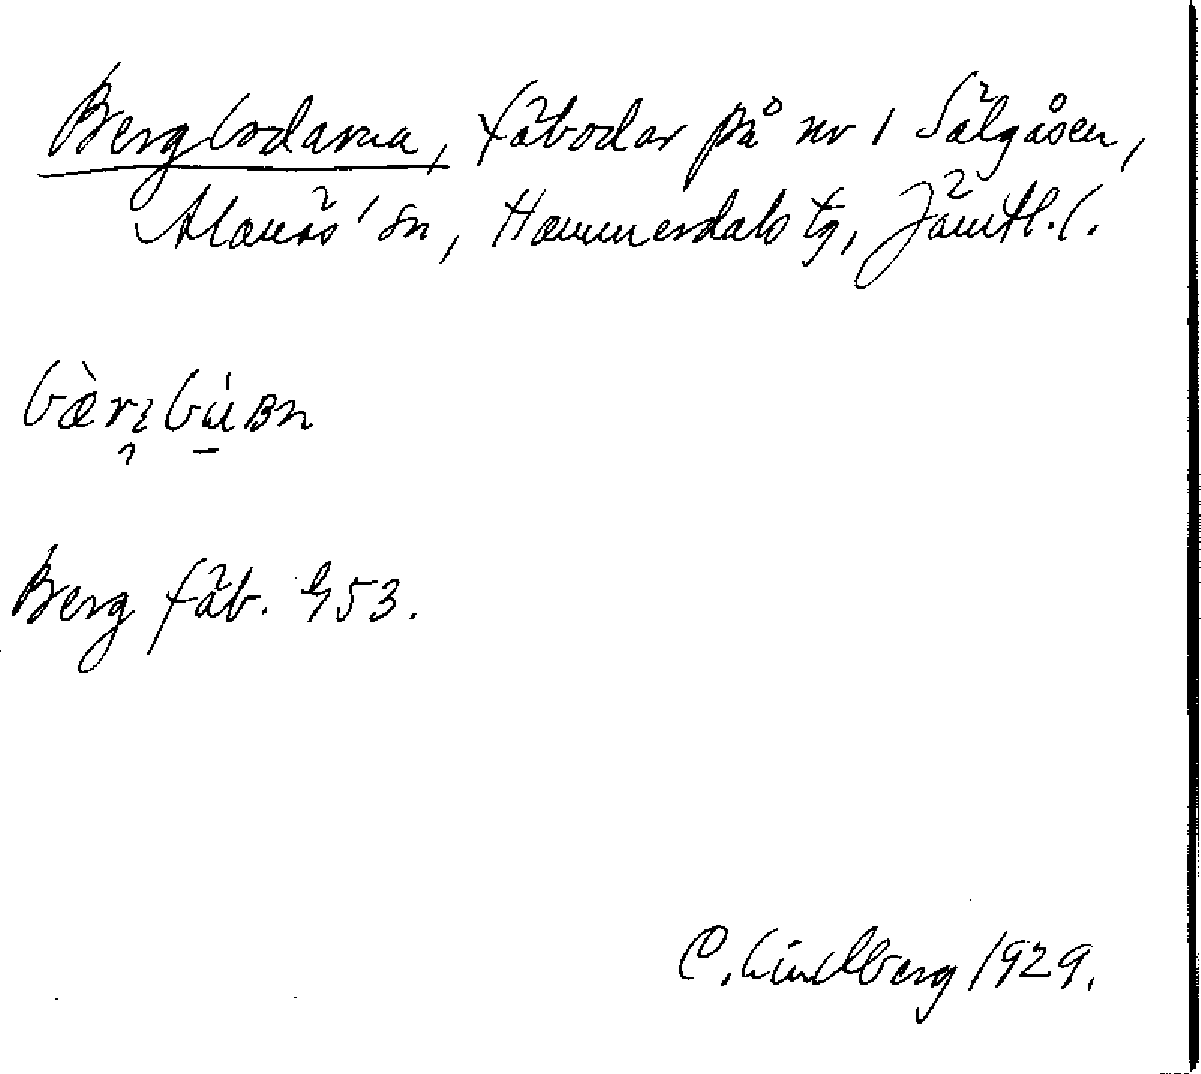 Bergbodarna, fäbodar på nr 1 Sälgåsen,
Alanäs' sn, Hammerdals tg, Jämtl. l.
Berg fäb. G53.
C. Lindberg 1929.